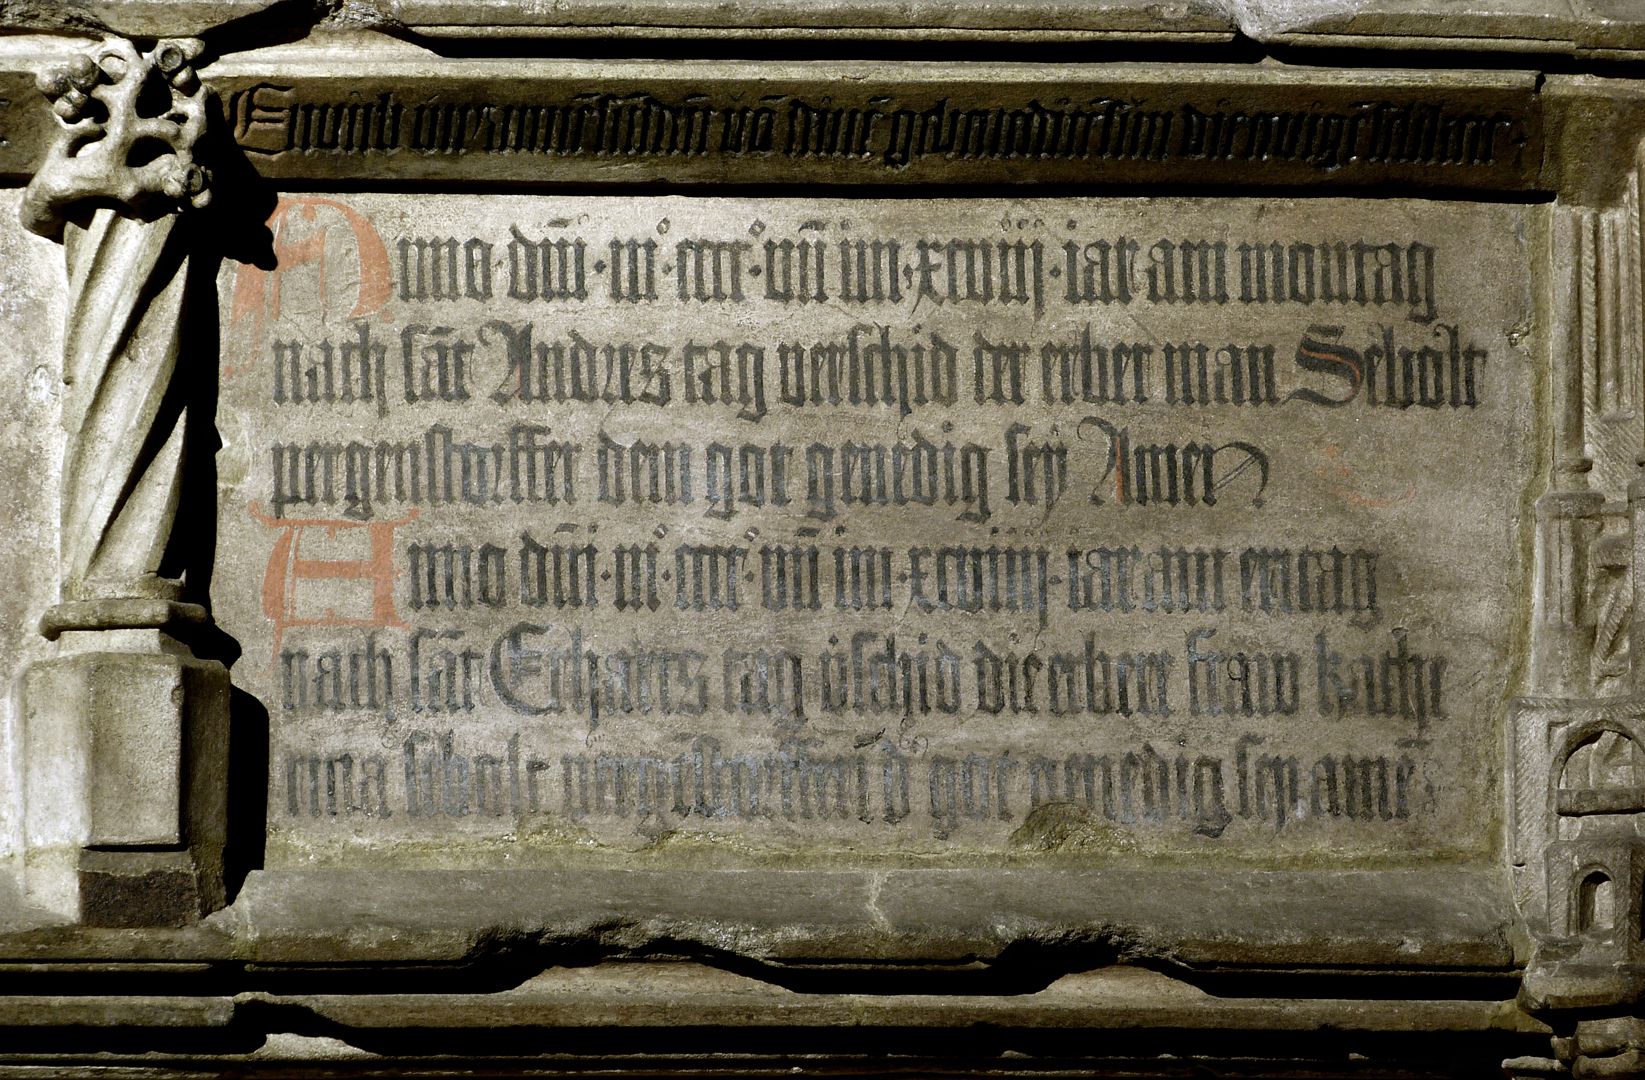 Anno · dm̄i · mͦ · cccͦ · vn̄ iiii · xcviij · iar am montag
nach sāt Andres tag verschid der erber man Sebolt
pergenstorffer dem got genedig sey Amen
Anno dm̄i · mͦ · cccͦ · vn̄ iiii · xcviiij · iar am eritag
nach sāt Erharts tag v̄schid die erbere fraw Kathe
rina sebolt pergēstorfferī d got genedig sey amē